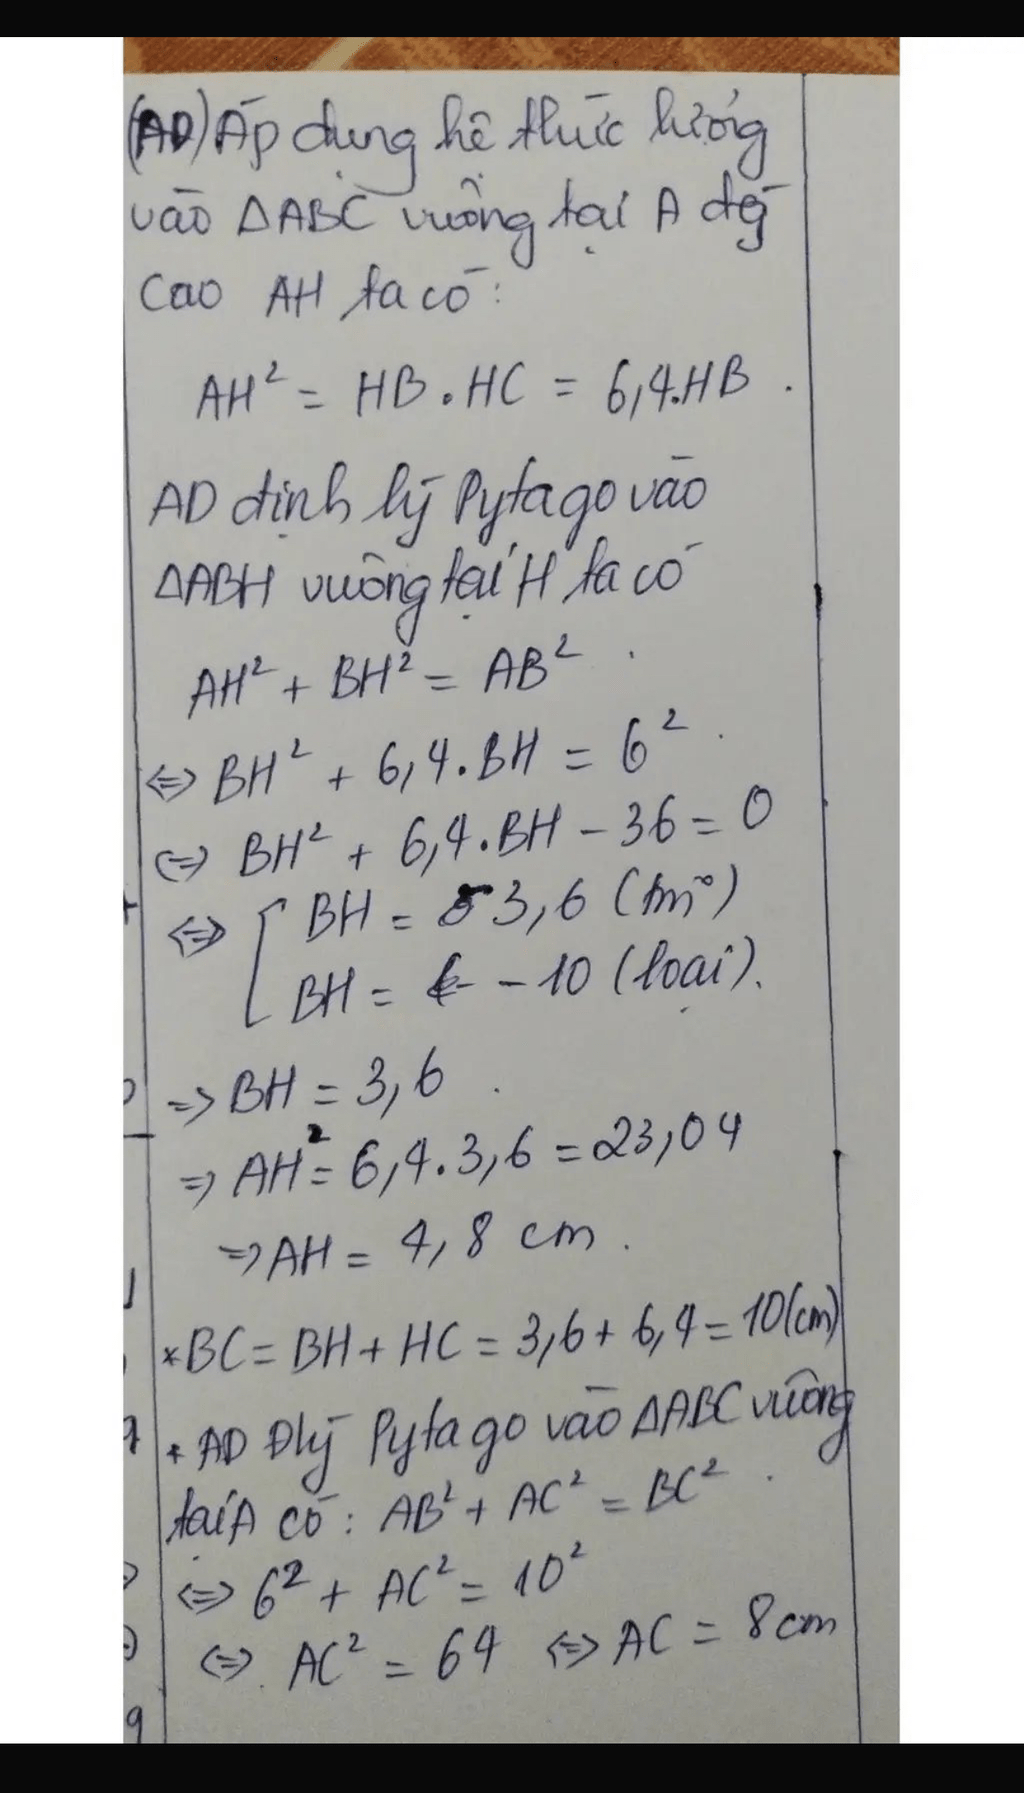 (AD) Áp dụng hệ thức lượng
vào ΔABC vuông tại A đg
cao AH ta có:
AH² = HB . HC = 6,4.HB .
AD định lý Pytago vào
ΔABH vuông tại H ta có
AH² + BH² = AB² .
⇔ BH² + 6,4.BH = 6² .
⇔ BH² + 6,4.BH - 36 = 0
⇔ [ BH = 3,6 (tm)
BH = -10 (loại).
=> BH = 3,6 .
=> AH² = 6,4.3,6 = 23,04
=> AH = 4,8 cm .
* BC = BH + HC = 3,6 + 6,4 = 10(cm)
* AD Đlý Pytago vào ΔABC vuông
tại A có: AB² + AC² = BC² .
⇔ 6² + AC² = 10²
⇔ AC² = 64 ⇔ AC = 8cm
9